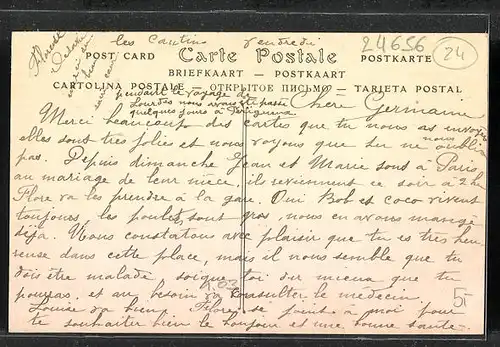 les Cautin vendredi
24656
24
Carte Postale
POST CARD
POSTKARTE
BRIEFKAART — POSTKAART
CARTOLINA POSTALE — ОТКРЫТОЕ ПИСЬМО — TARJETA POSTAL
Chère Germaine
pendant le voyage de
Lourdes nous avons été passé
quelques jours à
Merci beaucoup des cartes que tu nous as envoyé
elles sont très jolies et nous voyons que tu ne nous oublie
pas. Depuis dimanche Jean et Marie sont à Paris
au mariage de leur nièce, ils reviennent ce soir à 2h
Flore va les prendre à la gare. Oui Bob et coco vivent
toujours, les poulets sont gros, nous en avons mangé
déja. Nous constatons avec plaisir que tu es très heu-
reuse dans cette place, mais il nous semble que tu
dois être malade, soigne toi du mieux que tu
pourras et au besoin va consulter le medecin.
Louise va bien. Flore se joint à moi pour
te souhaiter bien le bonjour et une bonne santé.